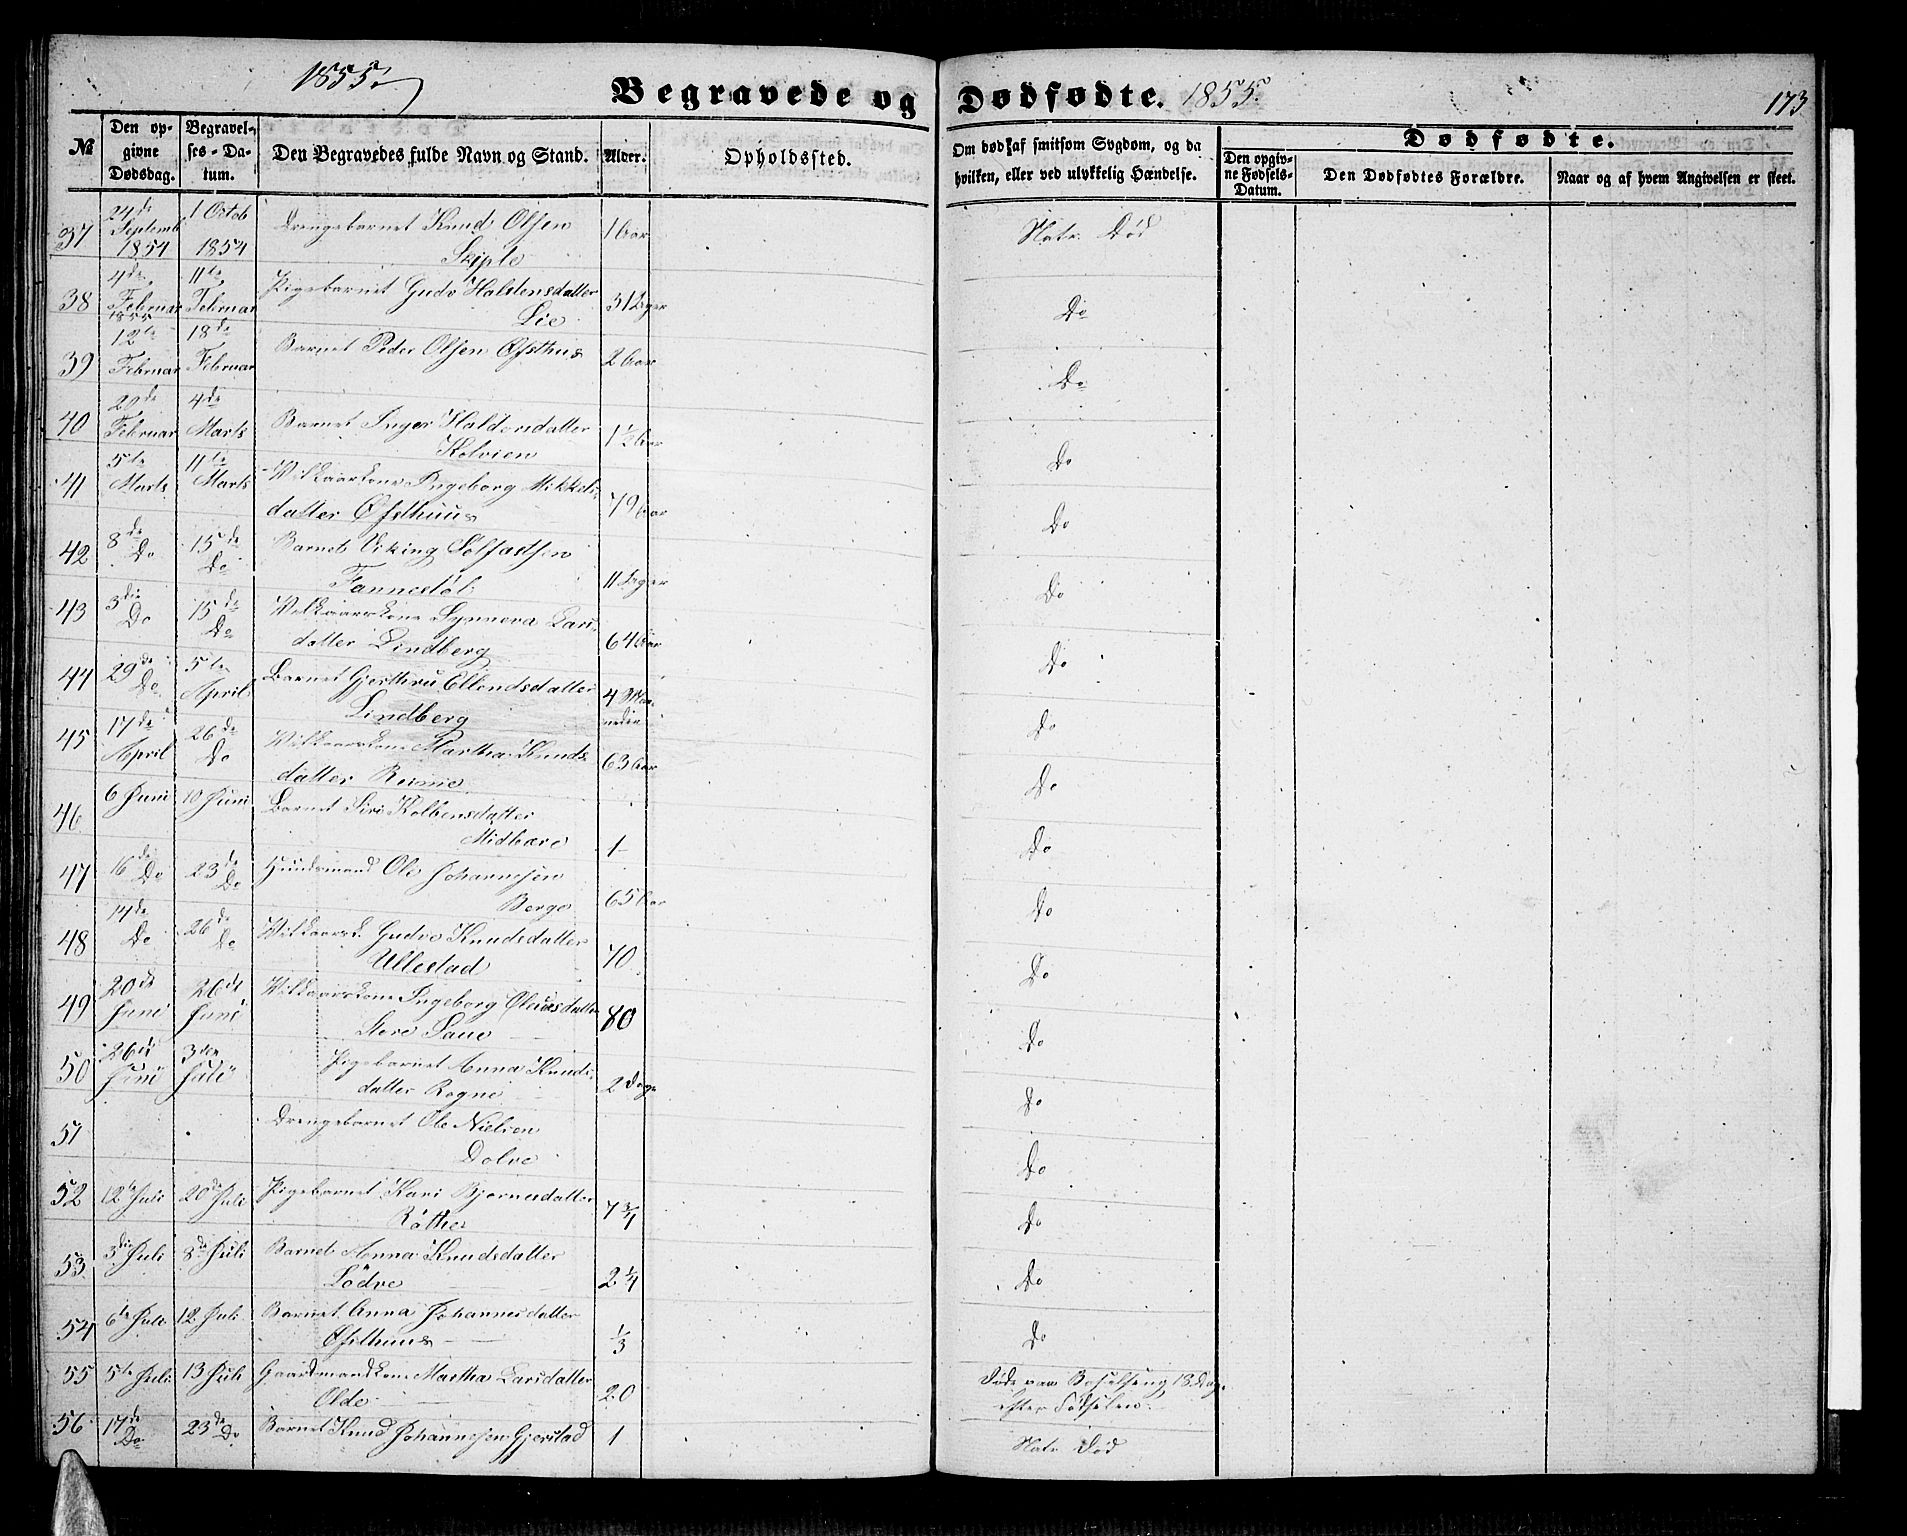 1855.
Begravede og Dødfødte. 1855.
173
№
Den opgivne Dødsdag.
Begravelses-Datum.
Den Begravedes fulde Navn og Stand.
Alder.
Opholdssted.
Om død af smitsom Sygdom, og da hvilken, eller ved ulykkelig Hændelse.
Dødfødte.
Den opgivne Fødsels-Datum.
Den Dødfødtes Forældre.
Naar og af hvem Angivelsen er skeet.
37 24de Septemb 1854 1 Octob 1854 Drengebarnet Knud Olsen 1 Aar Natr. Død
Skiple
38 4de Februar 1855 11te Februar Pigebarnet Gudv Haldensdatter 3 Uger Do
Lie
39 12te Februar 18de Februar Barnet Peder Olsen Øfsthus 2 Aar Do
40 Februar 4de Marts Barnet Inger Haldorsdatter 1½ Aar Do
Kolvien
41 5te Marts 11te Marts Vilkaarskone Ingeborg Mikkels- 79 Aar Do
datter Øfsthuus
42 8de Do 15de Do Barnet Viking Sjofastsen 11 Uger Do
Fannestøl
43 3die Do 15de Do Vilkaarskone Synneva Lars- 64 Aar Do
datter Lindberg
44 29de Do 5te April Barnet Gjerthru Ellendsdatter 4 Maaneder Do
Lindberg
45 17de April 26de Do Vilkaarskone Martha Knuds- 63 Aar Do
datter Reime
46 6 Juni 10 Juni Barnet Siri Kolbensdatter 1 Do
Midbære
47 16de Do 23de Do Huusmand Ole Johannesen 65 Aar Do
Berge
48 14de Do 26de Do Vilkaarsk. Gudve Knudsdatter 70 Do
Ullestad
49 20de Juni 26de Juni Vilkaarskone Ingeborg Oleversdatter 80 Do
Store Saue
50 26de Juni 3den Juli Pigebarnet Anna Knuds- 2 Dage Do
datter Rogne
51 Drengebarnet Ole Nielsen Do
Dolve
52 12te Juli 20de Juli Pigebarnet Kari Bjørnesdatter 7 3/4 Do
Røthe
53 3die Juli 8de Juli Barnet Anna Knudsdatter 2 1/4 Do
Lödve
54 6te Juli 12 Juli Barnet Anna Johannesdatter 1/3 Do
Øfsthuus
55 5te Juli 13 Juli Gaardmandskone Martha Larsdatter 20 Døde paa Barselseng 18 Dage
Olde efter Fødselen
56 17de Do 23de Do Barnet Knud Johannesen Gjerstad 1 Natr. Død